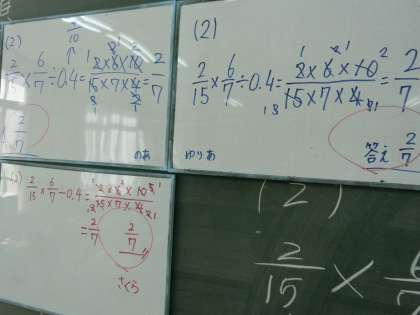 (2)
2/15 × 6/7 ÷ 0.4 = 2×6×10/15×7×4 = 2/7
2/7
のあ
(2)
2/15 × 6/7 ÷ 0.4 = 2×6×10/15×7×4 = 2/7
答え 2/7
ゆりあ
2/15 × 6/7 ÷ 0.4 = 2×6×10/15×7×4
= 2/7
2/7
さくら
(2)
2/15 × 6/7